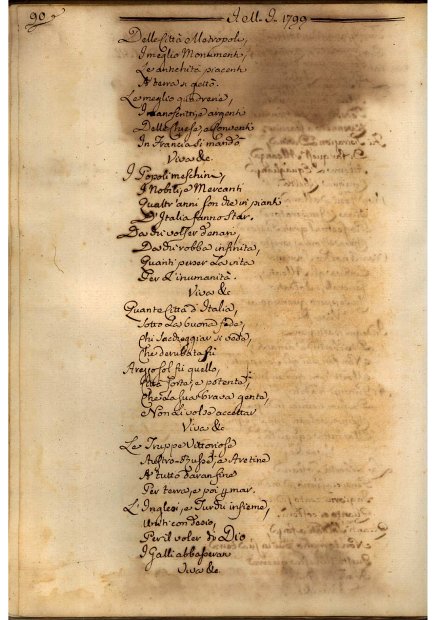 90
A. M. D. 1799
Delle Città Metropoli,
I meglio Monumenti,
Le antichità piacenti
A' terra si gettò.
Le meglio quadrerie,
Ed argenti
Delle Chiese, a' Conventi
In Francia si mandò
Viva &c
I Popoli meschini,
I Nobili, e Mercanti
Quattr'anni son che in pianti
D'Italia fanno star.
Da chi volser denari,
Da chi robba infinita,
Quanti perser la vita
Per L'inumanità.
Viva &c
Quante Città d'Italia,
Sotto La buona fede,
Chi saccheggiar si vede,
Che derubata fù
Arezzo sol fù quello,
Città forte, e potente,
Che La sua brava gente,
Non Li volse accettar
Viva &c
Le Truppe Vittoriose
Austro-Russe, e Aretine
A' tutto daran fine
Per terra, e poi p mar.
L'Inglesi, e Turchi insieme,
Uniti con desio,
Per il voler di Dio
I Galli abbasseran
Viva &c